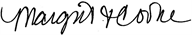 Margrit & Cooke